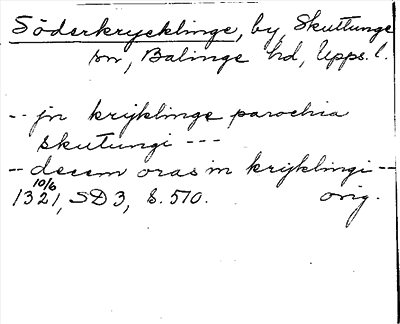 Söderkrycklinge, by, Skuttunge
sn, Bälinge hd, Upps. l.
-- jn krijklinge parochia
skutungi ---
-- decem oras in krijklingi --
10/6
1321, SD 3, s. 510. orig.